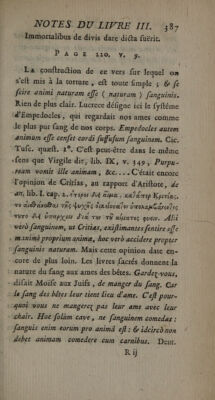 NOTES DU LIVRE III. 387
Immortalibus de divis dare dicta fuërit.
PAGE 220. V. 9.
La construction de ce vers sur lequel on
s'est mis à la torture, est toute simple ; & se
scire animi naturam esse ( naturam ) sanguinis.
Rien de plus clair. Lucrece désigne ici le systême
d'Empedocles, qui regardait nos ames comme
le plus pur sang de nos corps. Empedocles autem
animum esse censet cordi suffusum sanguinem. Cic.
Tusc. quest. 1°. C'est peut-être dans le même
sens que Virgile dit, lib. IX, v. 349, Purpu-
ream vomit ille animam, &c.... C'était encore
l'opinion de Critias, au rapport d'Aristote, de
an. lib. I. cap. 2.
verò sanguinem, ut Critias, existimantes sentire esse
maximè proprium animæ, hoc verò accidere propter
sanguinis naturam. Mais cette opinion date enc-
core de plus loin. Les livres sacrés donnent la
nature du sang aux ames des bêtes. Gardez-vous,
disait Moïse aux Juifs, de manger du sang. Car
le sang des bêtes leur tient lieu d'ame. C'est pour-
quoi vous ne mangerez pas leur ame avec leur
chair. Hoc solùm cave, ne sanguinem comedas :
sanguis enim eorum pro animâ est : & idcircò non
debet animam comedere cum carnibus. Deut.
R ij